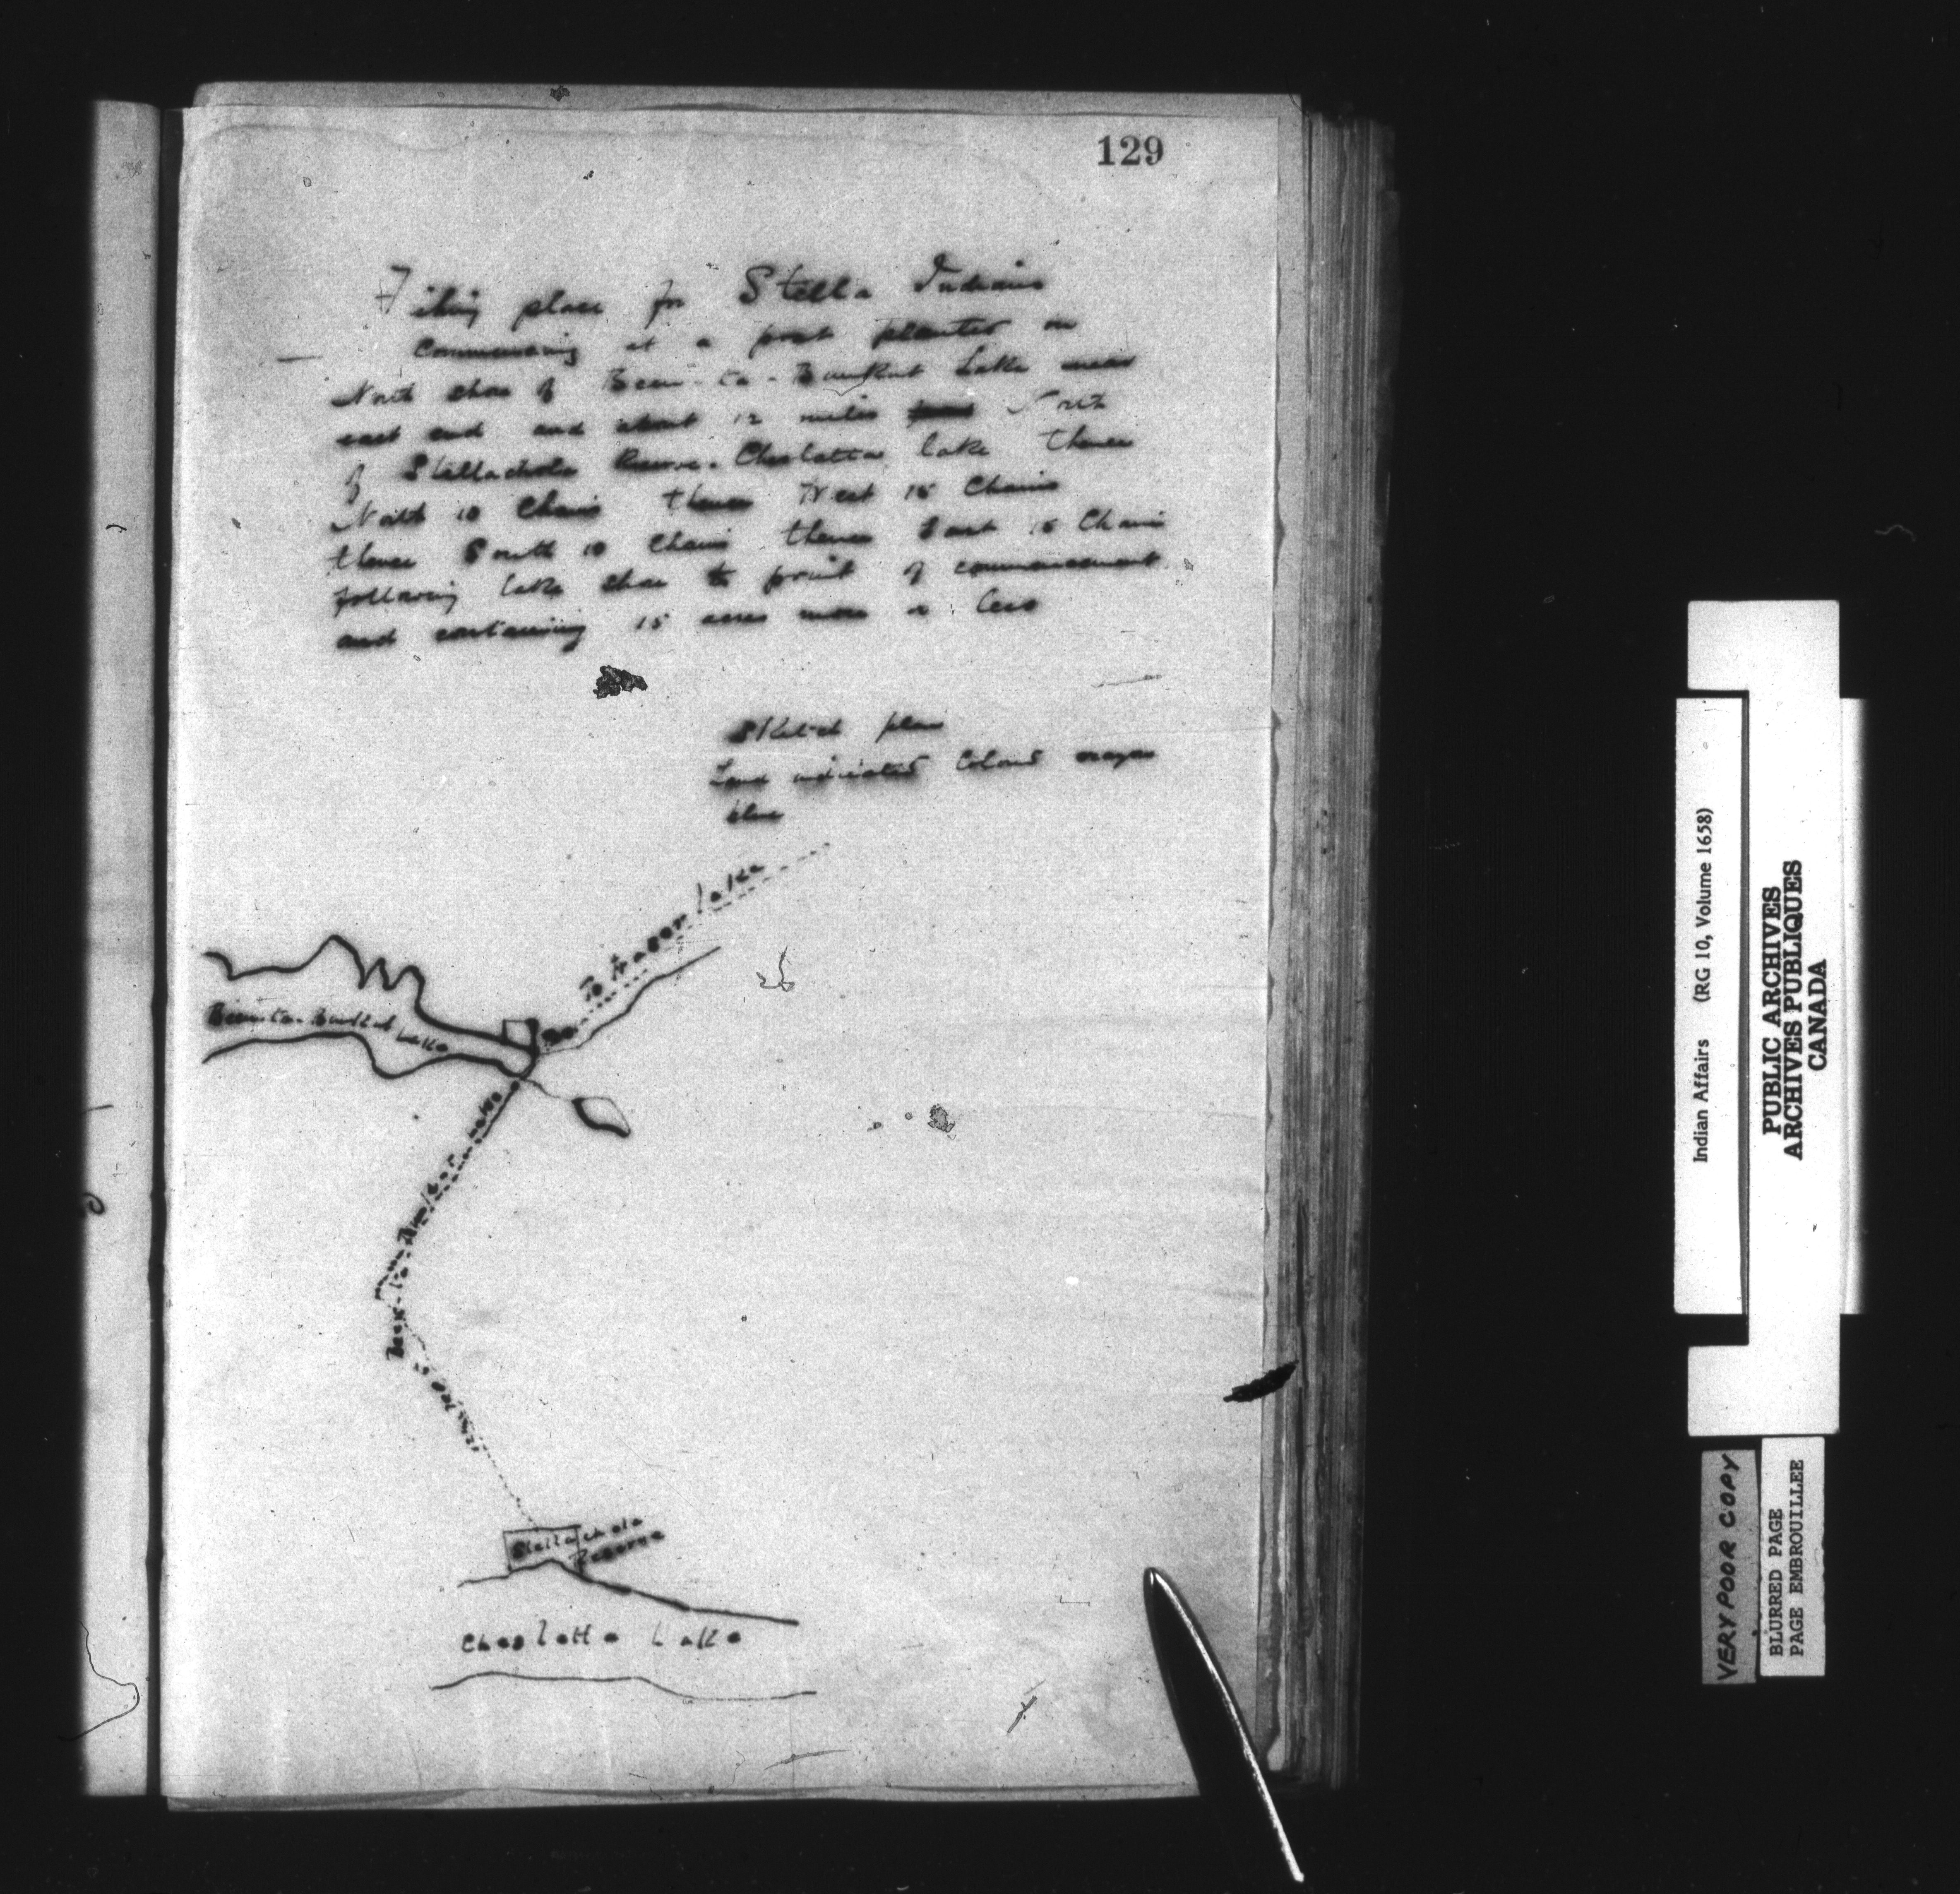 129
Fishing place for Stella Indians
Commencing at a post planted on
North shore of Lake near
east end and about 12 miles North
of Stellachola Reserve. Cheslatta lake thence
North 10 Chains thence West 15 Chains
thence South 10 Chains thence East 15 Chains
following lake shore to point of commencement
and containing 15 acres more or less
Sketch plan
Land indicated Colour
blue
To Fraser lake
Lake
12 miles
Stellachola
Reserve
Cheslatta Lake
Indian Affairs (RG 10, Volume 1658)
PUBLIC ARCHIVES
ARCHIVES PUBLIQUES
CANADA
VERY POOR COPY
BLURRED PAGE
PAGE EMBROUILLEE